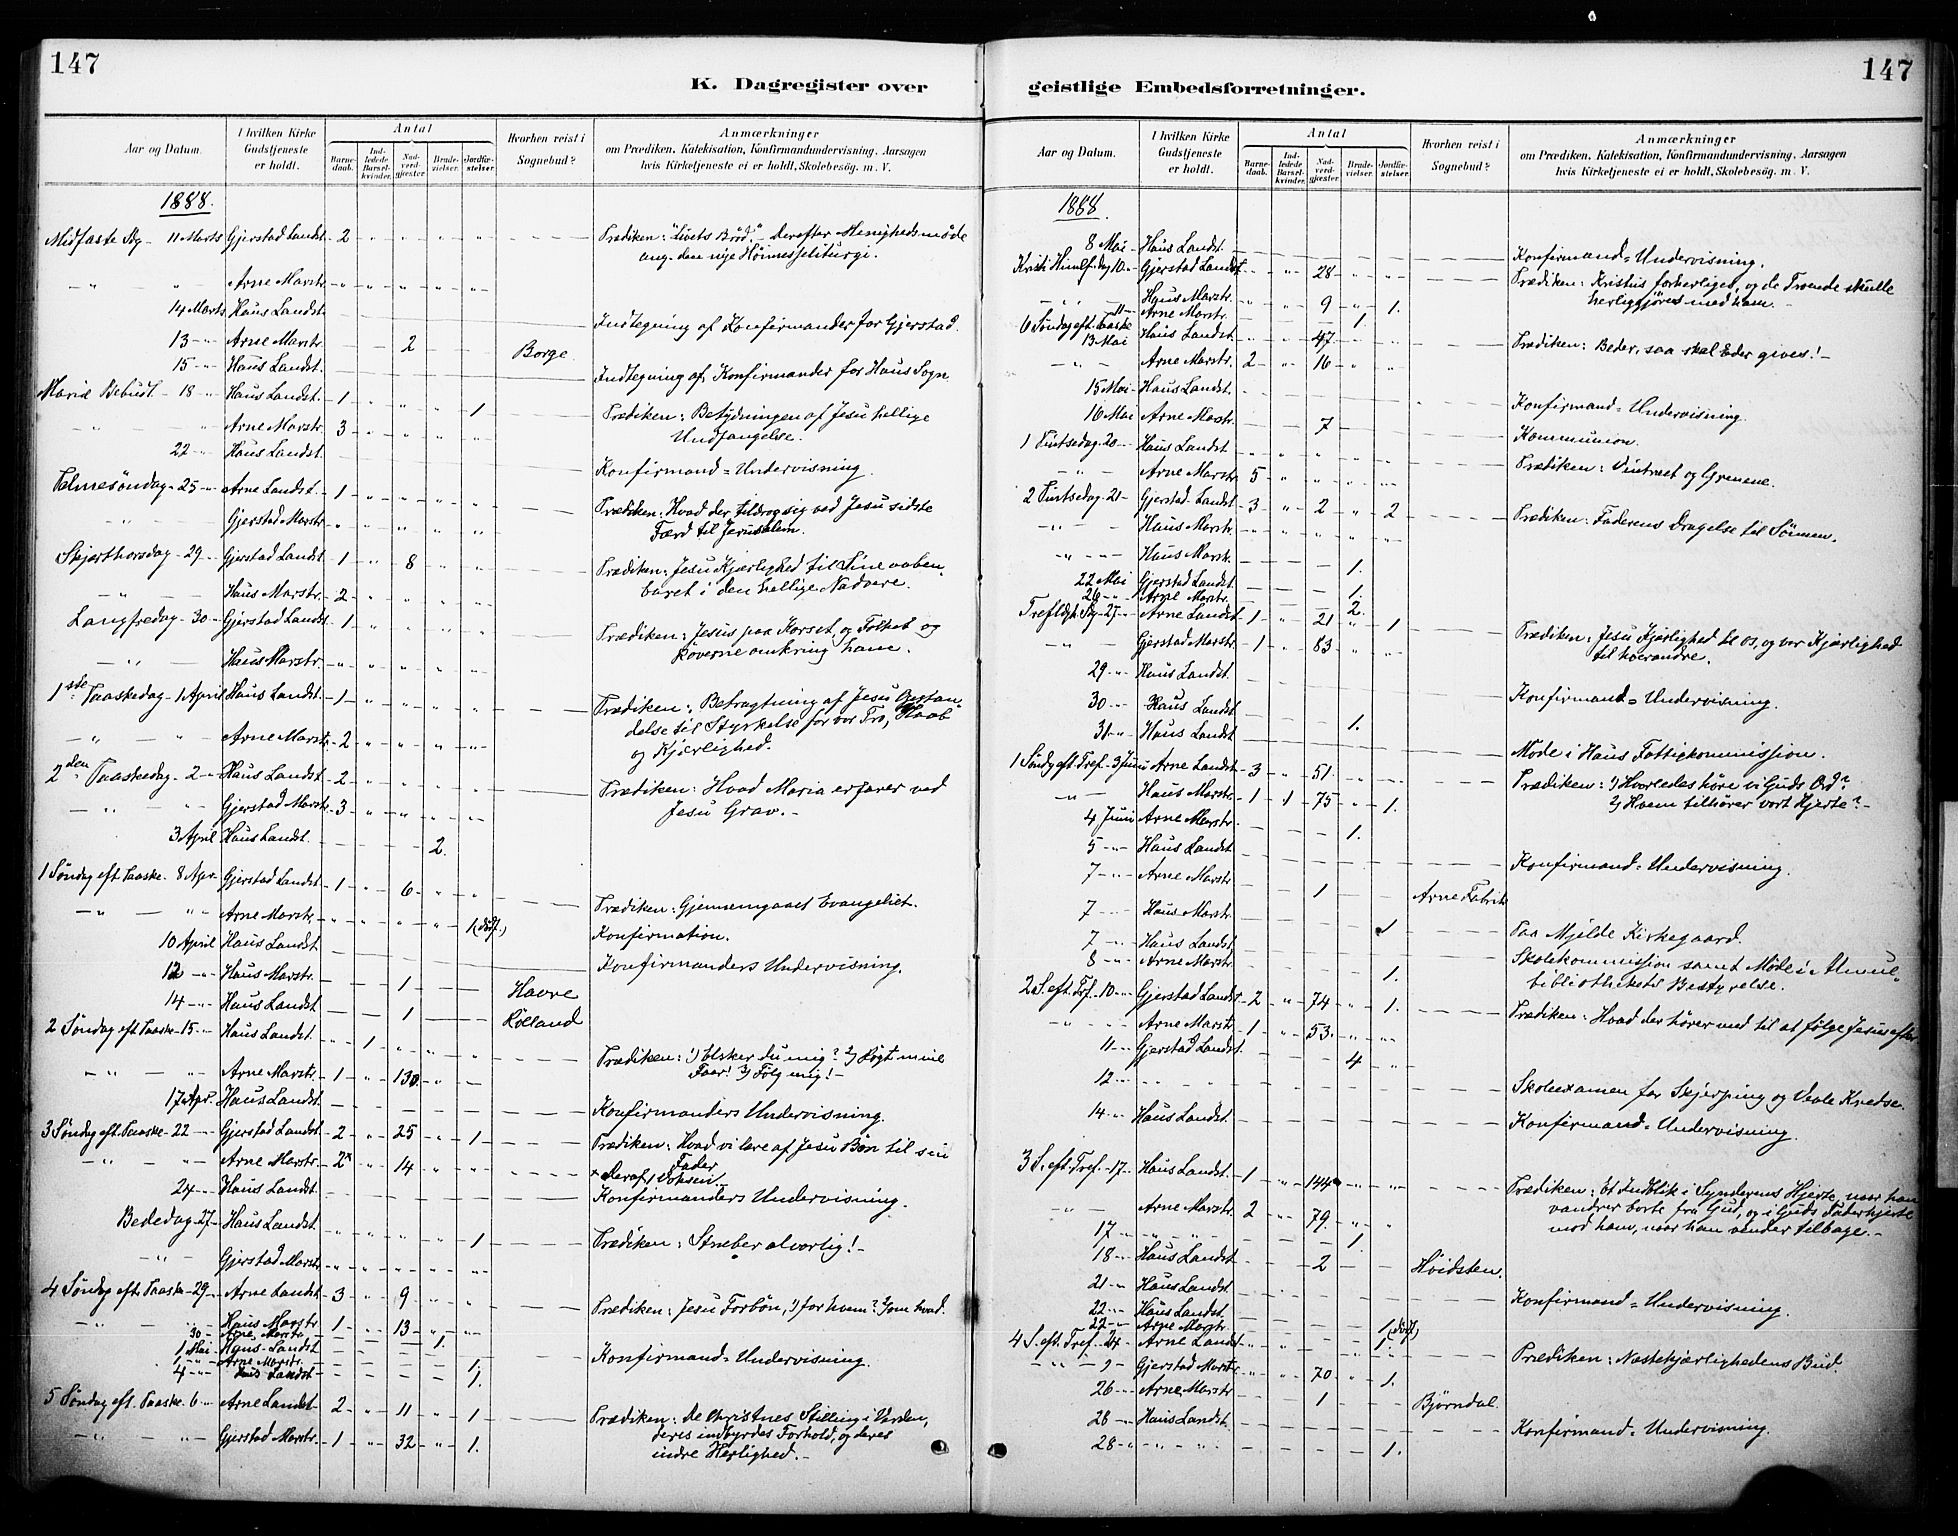 147
K. Dagregister over
Aar og Datum.
I hvilken Kirke Gudstjeneste er holdt.
Antal
Barnedaab.
Indledede Barselkvinder.
Nadverdgjæster.
Brudevielser.
Jordfæstelser.
Hvorhen reist i Sognebud?
Anmærkninger
om Prædiken, Katekisation, Konfirmandundervisning, Aarsagen
hvis Kirketjeneste ei er holdt, Skolebesøg. m. V.
1888.
Midfaste Sg - 11 Marts Gjerstad Landst. 2 " " " " — — Prædiken: "Livets Brød." - Derefter Menighedsmøde
ang. den nye
— " — " Arne Marstr. " " " " "
14 Marts Haus Landst. — — — — — Indtegning af Konfirmander for Gjerstad.
13 — " Arne Marstr. — — 2 — — Borge
15 — " Haus Landst. — — — — — Indtegning af Konfirmander for Haus Sogn
Mariæ Bebud. 18 " Haus Landst. 1 " " " 1 — — Prædiken: Betydningen af Jesu hellige
Undfangelse.
" " Arne Marstr. 3 " " " "
22 — " Haus Landst. — — — — — Konfirmand = Undervisning.
Palmesöndag - 25 " Arne Landst. 1 " " " " — — Prædiken: Hvad der tildrog sig ved Jesu sidste
Færd til Jerusalem.
" Gjerstad Marstr. " " " " "
Skjærthorsdag - 29 — Gjerstad Landst. 1 " 8 " " — — Prædiken: Jesu Kjærlighed til Sine aaben-
baret i den hellige Nadvere.
— " — Haus Marstr. 2 " " " "
Langfredag - 30 — Gjerstad Landst. 1 " " " " — — Prædiken: Jesus paa Korset, og Folket og
Røverne omkring ham.
— " — Haus Marstr. " " " " "
1ste Paaskedag - 1 April Haus Landst. 1 " " " " — — Prædiken: Betragtning af Jesu Opstan-
delse til Styrkelse for vor Tro, Haab
og Kjærlighed.
— " — " Arne Marstr. 2 " " " "
2den Paaskedag - 2 " Haus Landst. 2 " " " " — — Prædiken: Hvad Maria erfarer ved
Jesu Grav. -
— " — " Gjerstad Marstr. 3 " " " "
3 April Haus Landst. — — — 2.
1 Søndag eft. Paaske - 8 Apr. Gjerstad Landst. 1 " 6 " " — — Prædiken: Gjennemgaaet Evangeliet.
— " — " Arne Marstr. " " " " 1 — — Konfirmation.
10 April Haus Landst. — — — — — Konfirmanders Undervisning.
12 — " Haus Marstr. — — 1 — — Havre
14 — " Haus Landst. — — 1 — — Rölland
2 Søndag eft. Paaske - 15 " Haus Landst. " 1 " " " — — Prædiken: 1) Elsker du mig? 2) Røgt mine
Faar! 3) Følg mig! -
— " — " Arne Marstr. 1 " 130 " "
17 Apr. Haus Landst. — — — — — Konfirmanders Undervisning.
3 Søndag eft. Paaske - 22 " Gjerstad Landst. 2 " 25 " 1 — — Prædiken: Hvad vi lære af Jesu Bøn til sin
Fader
— " — " Arne Marstr. 2× " 14 " " × Deraf 1 Voksen.
24 — " Haus Landst. — — — — — Konfirmanders Undervisning.
Bededag - 27 — Haus Landst. " " " " 1 — — Prædiken: Stræber alvorlig! -
— " — Gjerstad Marstr. " " " " "
4 Søndag eft. Paaske - 29 " Arne Landst. 3 " 9 " " — — Prædiken: Jesu Forbøn, 1) for hvem? 2) om hvad.
— " — " Haus Marstr. 1 " 13 " "
30 — Arne Marstr. — — — 1.
1 Mai Haus Landst. — — — — — Konfirmand = Undervisning.
1 " Arne Marstr. — — — — 1.
4 — " Haus Landst. — — — — 1.
5 Søndag eft. Paaske - 6 " Arne Landst. 2 " 11 " 1 — — Prædiken: De Christnes Stilling i Verden,
deres indbyrdes Forhold, og deres
indre Herlighed. -
— " — " Gjerstad Marstr. 1 " 32 " 1.
147
geistlige Embedsforretninger.
Aar og Datum.
I hvilken Kirke Gudstjeneste er holdt.
Antal
Barnedaab.
Indledede Barselkvinder.
Nadverdgjæster.
Brudevielser.
Jordfæstelser.
Hvorhen reist i Sognebud?
Anmærkninger
om Prædiken, Katekisation, Konfirmandundervisning, Aarsagen
hvis Kirketjeneste ei er holdt, Skolebesøg. m. V.
1888.
8 Mai - Haus Landst. — — — — — Konfirmand = Undervisning.
Kristi Himmelf. dag 10 " Gjerstad Landst. " " 28 " " — — Prædiken: Kristus forherliget, og de Troende skulle
herliggjøres med ham. -
— " — Haus Marstr. " " 9 " 1.
11 — Arne Marstr. — — — 1.
6 Søndag eft. Paaske 13 Mai Haus Landst. " " 47 " " — — Prædiken: Beder, saa skal Eder gives! -
— " — Arne Marstr. 2 " 16 " "
15 Mai - Haus Landst. — — — — — Konfirmand = Undervisning.
16 Mai Arne Marstr. — — 7 — — Kommunion.
1 Pintsedag - 20 — Haus Landst. " " " " " — — Prædiken: Vintræet og Grenene.
— " — Arne Marstr. 5 " " " "
2 Pintsedag - 21 — Gjerstad Landst. 3 " 2 " 2 — — Prædiken: Faderens Dragelse til Sønnen.
— " — Haus Marstr. " " " " "
" — " — Haus Marstr. — — — 1.
22 Mai Gjerstad Landst. — — — 1.
26 " Arne Marstr. — — — 2.
Trefldgh. Sg - 27 " Arne Landst. 1 " 21 " 1 — — Prædiken: Jesu Kjærlighed til os, og vor Kjærlighed
til hverandre.
— " — Gjerstad Marstr. 1 " 83 " "
29 — Haus Landst. — — — — — Konfirmand = Undervisning.
30 — Haus Landst. — — — 1.
31 " Haus Landst. — — — — — Møde i Haus Fattigkommission.
1 Søndg eft. Tref. - 3 Juni Arne Landst. 3 " 51. " " — — Prædiken: 1) Hvorledes høre vi Guds Ord?
2) Hvem tilhører vort Hjerte? -
— " — Haus Marstr. 1 1 75 " 1.
4 Juni Arne Marstr. — — — 1.
5 — " Haus Landst. — — — — — Konfirmand = Undervisning.
7 — " Arne Marstr. — — 1 — — Arne Fabrik
7 — " Haus Marstr. — — — — 1 — — Paa Mjelde Kirkegaard.
7 — " Haus Landst. — — — — — Skolekommission samt Møde i Almue-
bibliothekets Bestyrelse.
8 — " Arne Marstr. — — — — 1.
2 S. eft. Trf. - 10 — " Gjerstad Landst. 2 " 74 " 1. — — Prædiken: Hvad der hører med til at følge Jesus efter
" " Arne Marstr. 1 " 53. " "
11 — " Gjerstad Landst. — — — 4
12 — " " " — — — — — Skoleexamen for Skjerping og Vaule Kredse.
14 — " Haus Landst. — — — — — Konfirmand = Undervisning.
3 S. eft. Tref. - 17 " Haus Landst. 1 " 144 " " — — Prædiken: Et Indblik i Synderens Hjerte, naar han
vandrer borte fra Gud, og i Guds Faderhjerte
mod ham, naar han vender tilbage. -
" Arne Marstr. 2 " 79. " "
17 " " " — — — 1.
18 — " Haus Landst. — — 2 — — Høidsten.
21 — " Haus Landst. — — — — — Konfirmand = Undervisning.
22 — " Haus Landst.
22 — " Arne Marstr. — — — — 1
4 S. eft. Tref. - 24 " Arne Landst. " " " " 1. — — Prædiken: Næstekjærlighedens Bud.
— " — Gjerstad Marstr. " " 70 " 1.
26 — Arne Marstr. — — 1 — — Bjørndal
28 — Haus Landst. — — — — — Konfirmand = Undervisning.
28 " " " — — — — 1.